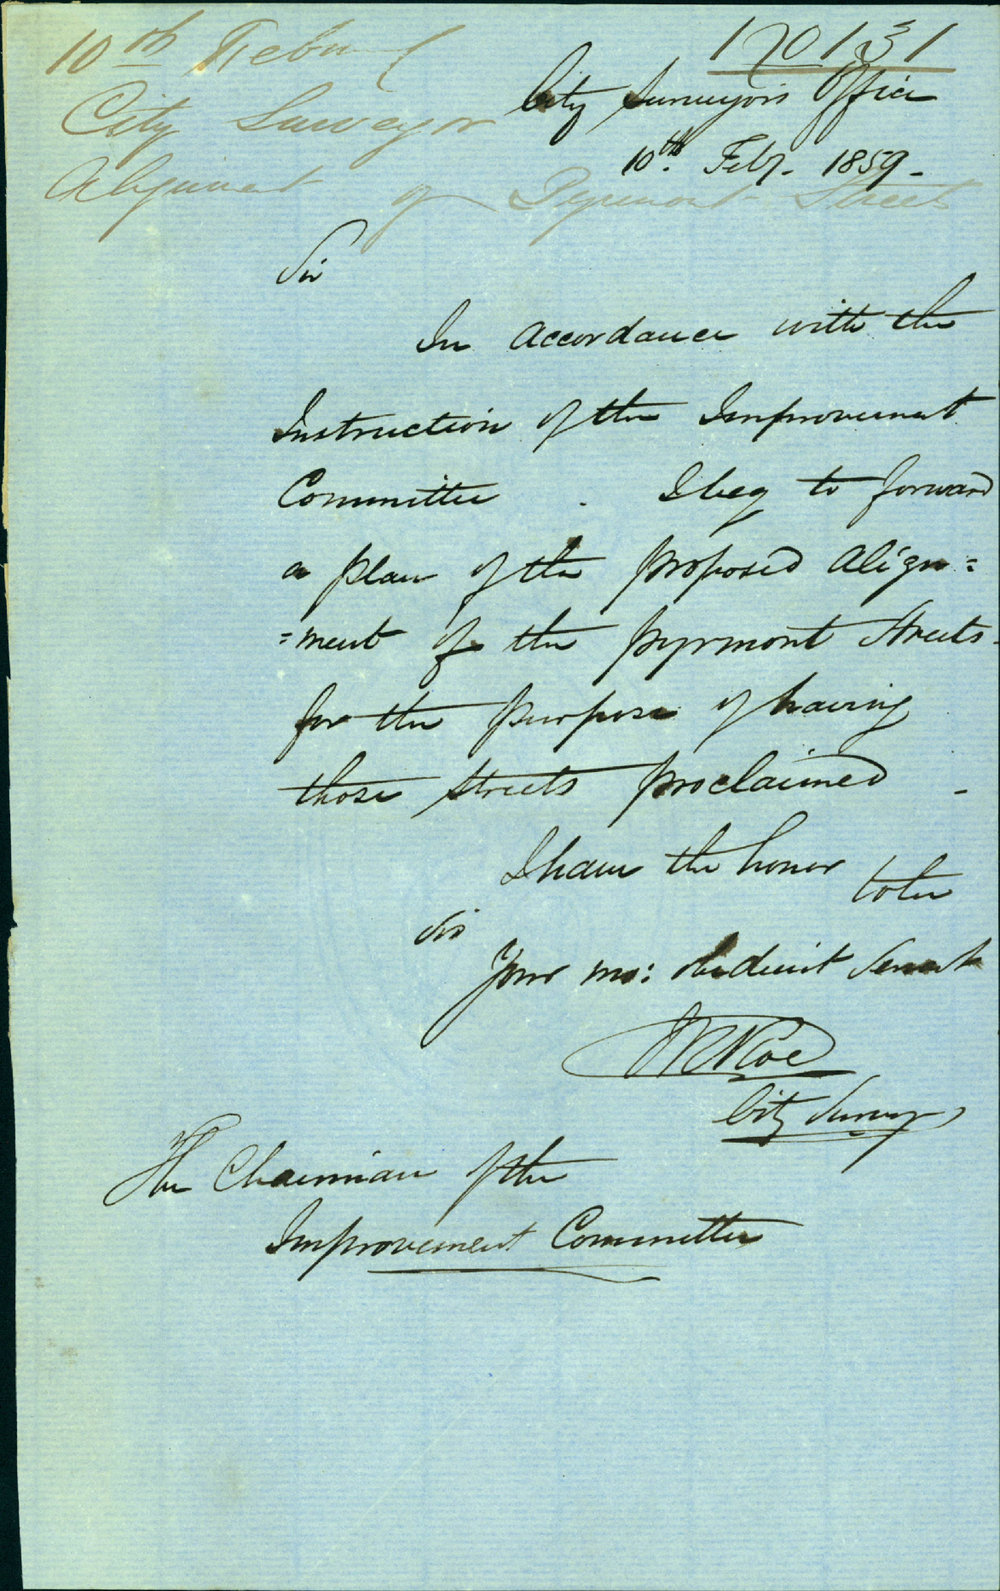 10th Feby
170131
City Surveyor
City Surveyors Office
10th. Feby. 1859 -
Alignment of Pyrmont Streets
Sir
In accordance with the
Instruction of the Improvement
Committee . I beg to forward
a plan of the proposed Align=
=ment of the pyrmont Streets
for the purpose of having
those streets proclaimed -
I have the honor to be
Sir
Your mo: obedient Servant
City Surveyor
The Chairman of the
Improvement Committee